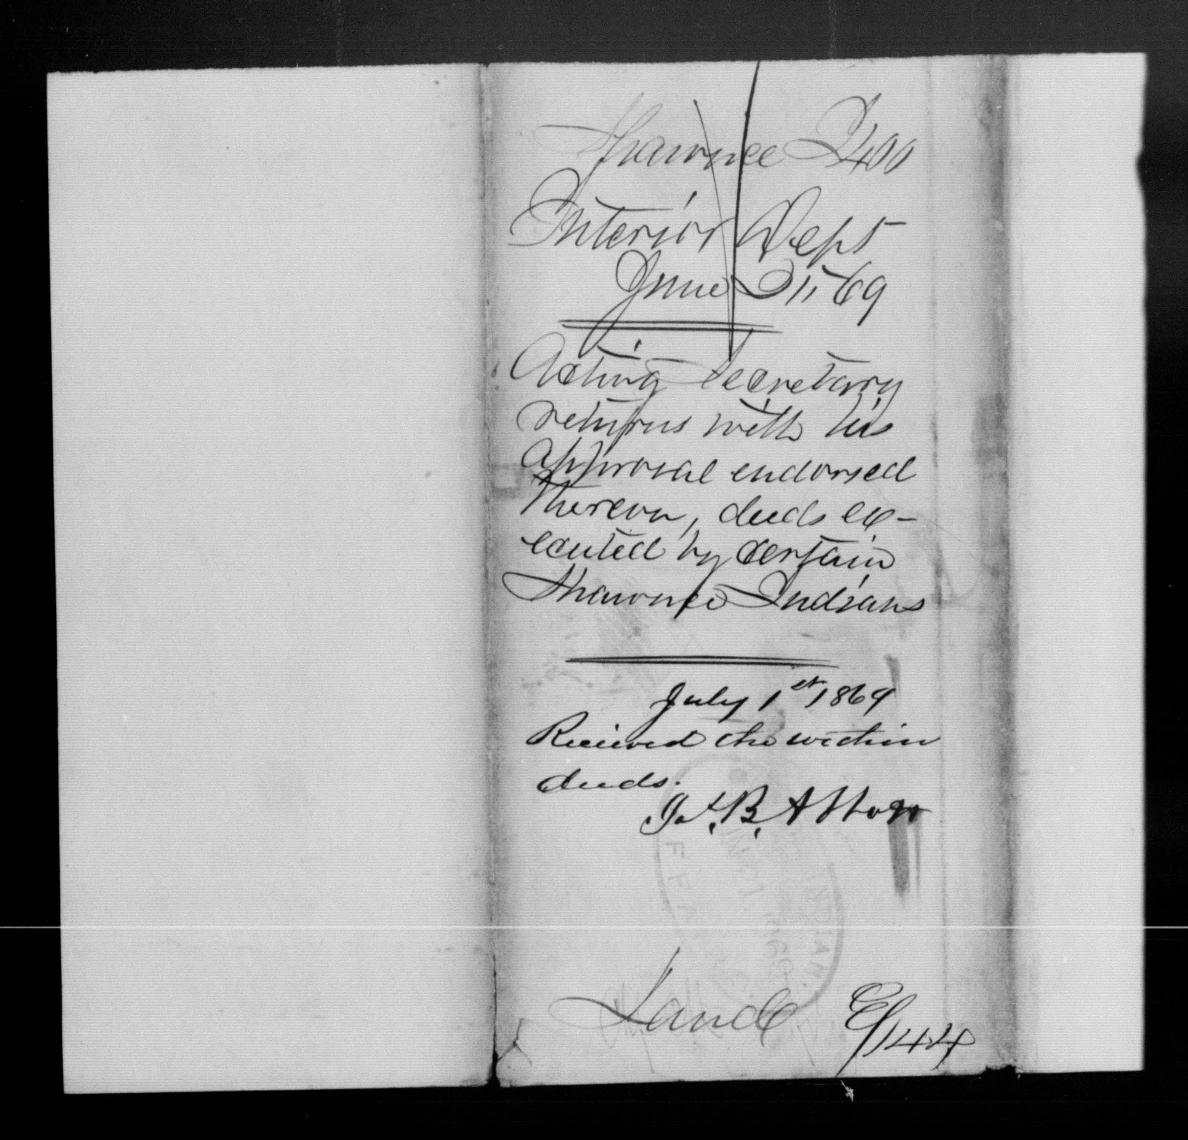 Shawnee I 400
Interior Dept
June 21 '69
Acting Secretary
returns with his
approval endorsed
thereon, deeds ex-
ecuted by certain
Shawnee Indians
July 1st 1869
Received the within
deeds.
Jas. B. Abbott
INDIAN
Land
E/144